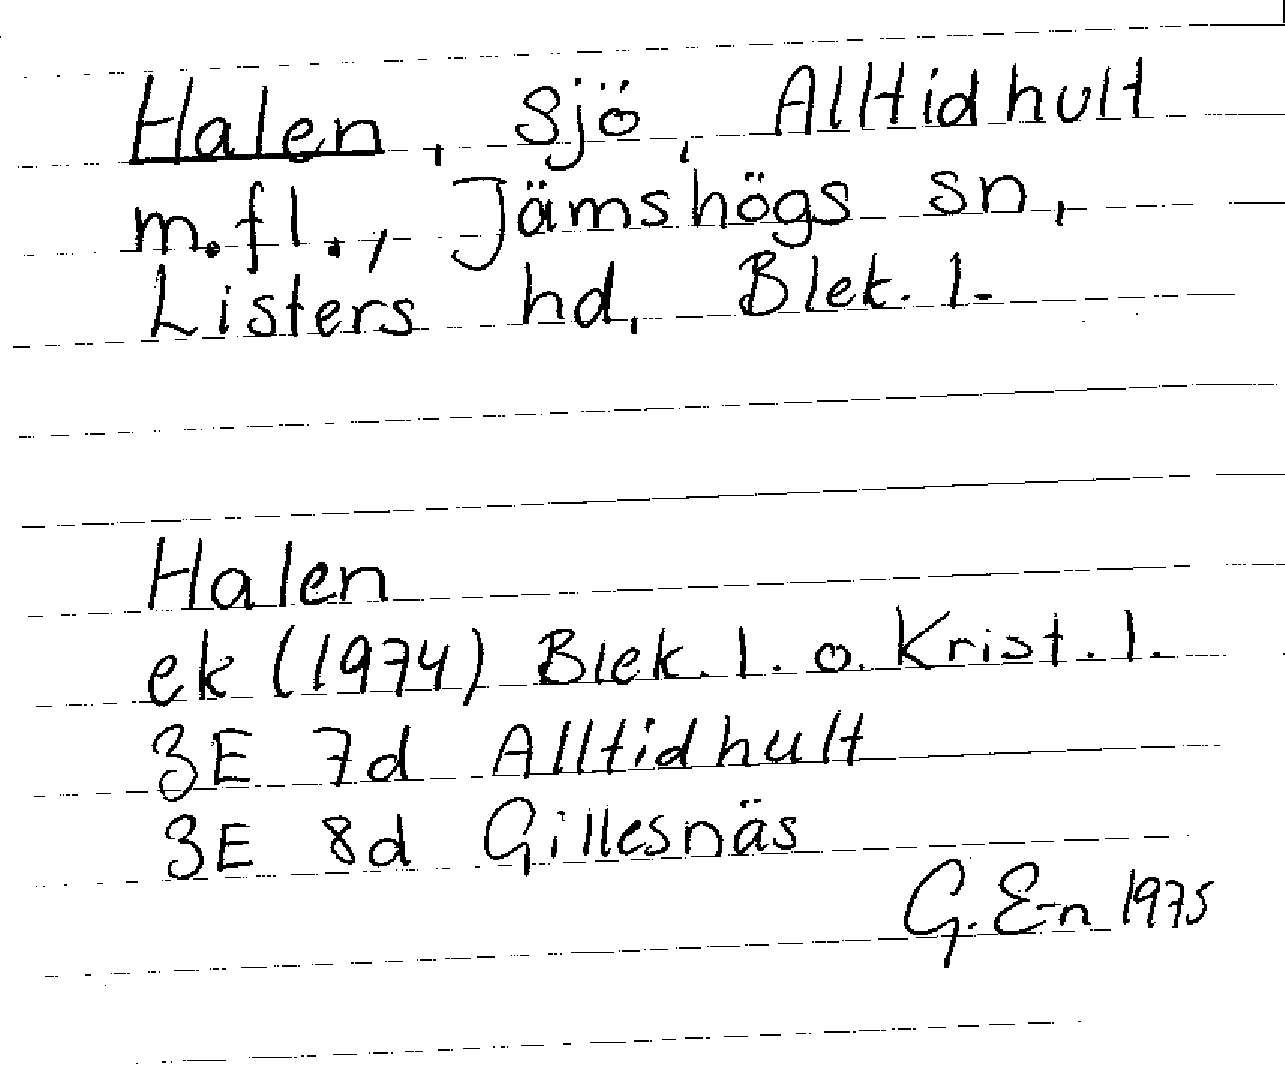 Halen, sjö, Alltidhult
m.fl., Jämshögs sn,
Listers hd, Blek. l.
Halen
ek (1974) Blek. l. o. Krist. l.
3E 7d Alltidhult
3E 8d Gillesnäs
G. E-n 1975